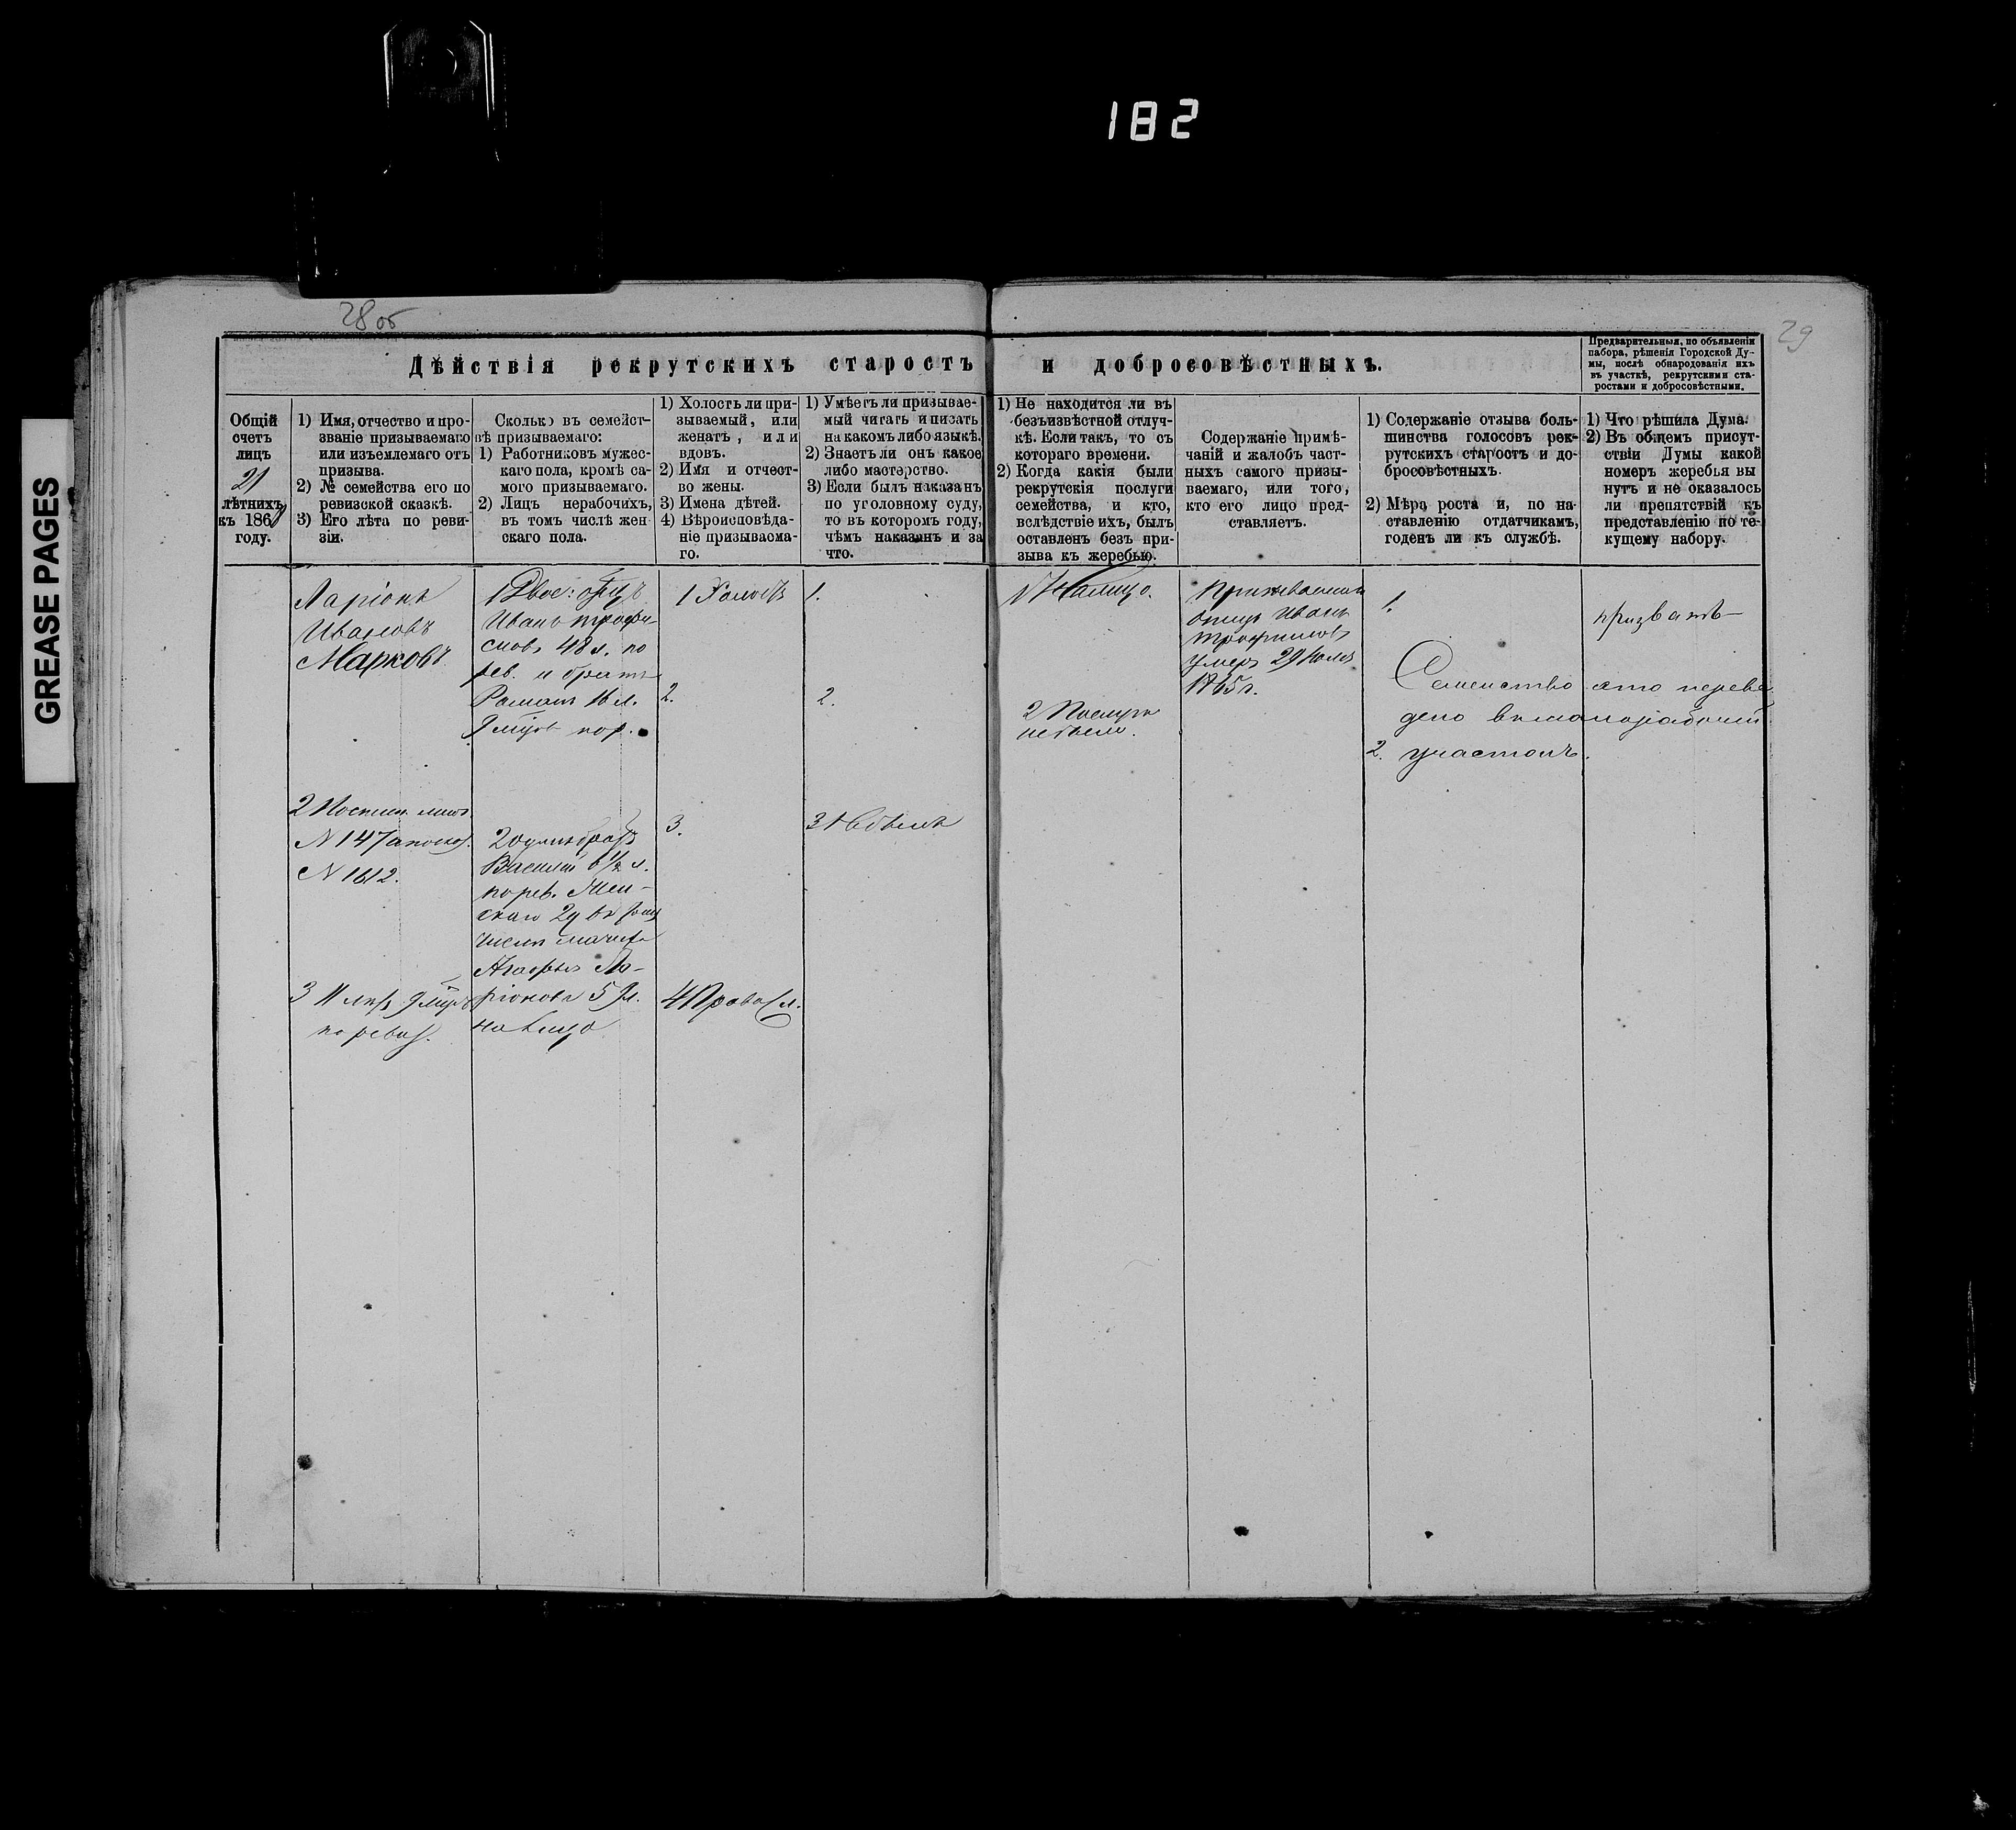 182
GREASE PAGES
28 об
29
Дѣйствія рекрутскихъ старостъ и добросовѣстныхъ.
Предварительныя, по объявленіи
набора, рѣшенія Городской Ду-
мы, послѣ обнародованія ихъ
въ участкѣ, рекрутскими ста-
ростами и добросовѣстными.
Общій
счетъ
лицъ
21
лѣтнихъ
къ 1867
году.
1) Имя, отчество и про-
званіе призываемаго
или изъемлемаго отъ
призыва.
2) № семейства его по
ревизской сказкѣ.
3) Его лѣта по реви-
зіи.
Сколько въ семейст-
вѣ призываемаго:
1) Работниковъ мужес-
каго пола, кромѣ са-
мого призываемаго.
2) Лицъ нерабочихъ,
въ томъ числѣ жен
скаго пола.
1) Холостъ ли при-
зываемый, или
женатъ, или
вдовъ.
2) Имя и отчест-
во жены.
3) Имена дѣтей.
4) Вѣроисповѣда-
ніе призываема-
го.
1) Умѣетъ ли призывае-
мый читать и писать
на какомъ либо языкѣ.
2) Знаетъ ли онъ какое
либо мастерство.
3) Если былъ наказанъ
по уголовному суду,
то въ которомъ году,
чѣмъ наказанъ и за
что.
1) Не находится ли въ
безъизвѣстной отлуч-
кѣ. Если такъ, то съ
котораго времени.
2) Когда какія были
рекрутскія послуги
семейства, и кто,
вслѣдствіе ихъ, былъ
оставленъ безъ при-
зыва къ жеребью.
Содержаніе примѣ-
чаній и жалобъ част-
ныхъ самого призы-
ваемаго, или того,
кто его лицо пред-
ставляетъ.
1) Содержаніе отзыва боль-
шинства голосовъ рек-
рутскихъ старостъ и до-
бросовѣстныхъ.
2) Мѣра роста и, по на-
ставленію отдатчикамъ,
годенъ ли къ службѣ.
1) Что рѣшила Дума.
2) Въ общемъ присут-
ствіи Думы какой
номеръ жеребья вы
нутъ и не оказалось
ли препятствій къ
представленію по те-
кущему набору.
Ларіонъ
Ивановъ
Марковъ
2
N 147
N 1612.
3 11 лѣтъ
по ревиз.
1 Двое: отецъ
Иванъ Трофи-
мовъ 48 л. по
рев. и братъ
Романъ 16 л.
2 одинъ братъ
Василій 6 1/2 л.
по рев. Жен-
скаго 2 въ томъ
числѣ
Агафья Ла-
ріонова 59 л.
на лицо
1 Холостъ
2.
3.
4 Правосл.
1.
2.
3 Небылъ
1 Налицо.
2 Послуги
небыло.
отецъ Иванъ
Трофимовъ
умеръ 29 Іюля
1865 г.
1.
Семейство это переве
дено в малорабочій
2. участокъ.
призвать